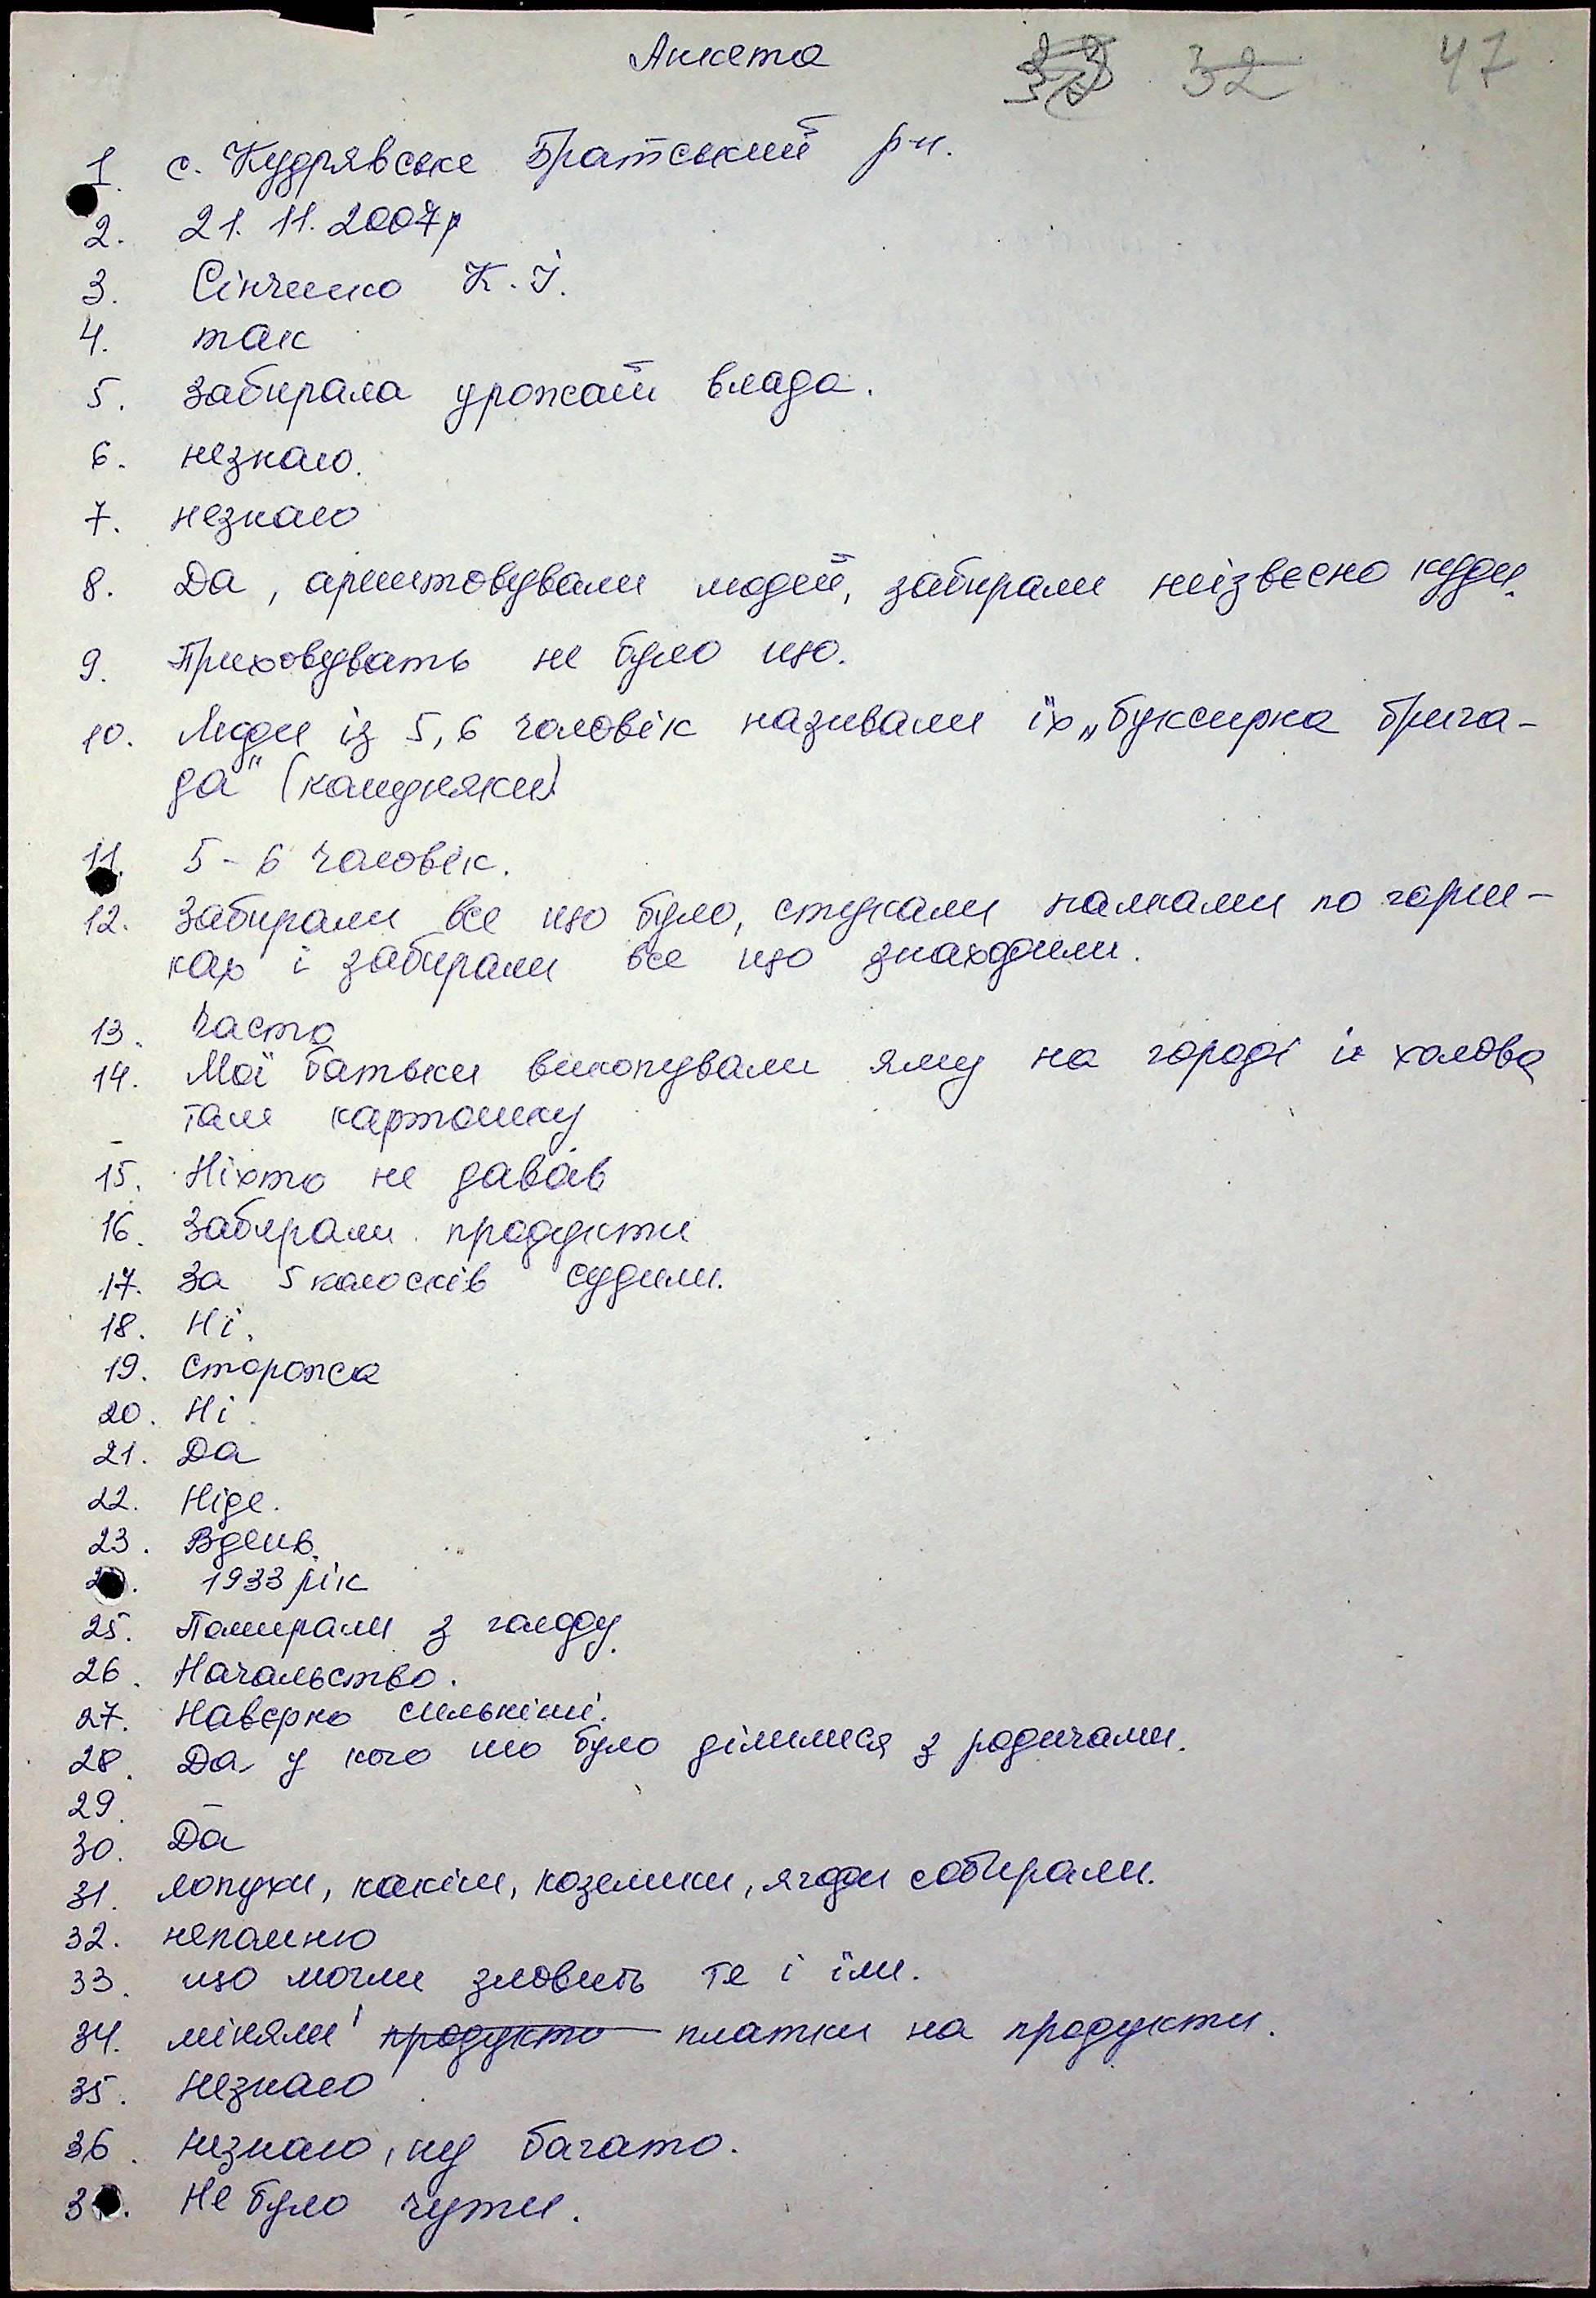 Анкета 32 47
1. с. Кудрявське Братський р-н.
2. 21. 11. 2007р
3. Сінченко К. І.
4. так
5. Забирала урожай влада.
6. незнаю.
7. незнаю
8. Да, арештовували людей, забирали неізвєсно куди.
9. Приховувать не було що.
10. Люди із 5, 6 чоловік називали їх „буксирна брига-
да" (комурняки)
11. 5 - 6 чоловік.
12. Забирали все що було, стукали палками по горш-
ках і забирали все що знаходили.
13. Часто
14. Мої батьки викопували яму на городі і ховова
там картошку
15. Ніхто не давав
16. Забирали продукти
17. За 5 колосків судили.
18. Ні.
19. Сторожа
20. Ні.
21. Да
22. Ніде.
23. Вдень.
1933 рік
25. Помирали з голоду.
26. Начальство.
27. Навєрно сильніші.
28. Да у кого шо було ділилися з родичами.
29. –
30. Да
31. лопухи, козелики, ягоди собирали.
32. непомню
33. що могли зловить те і їли.
34. міняли продукто платки на продукти.
35. незнаю
36. незнаю, ну багато.
Не було чути.